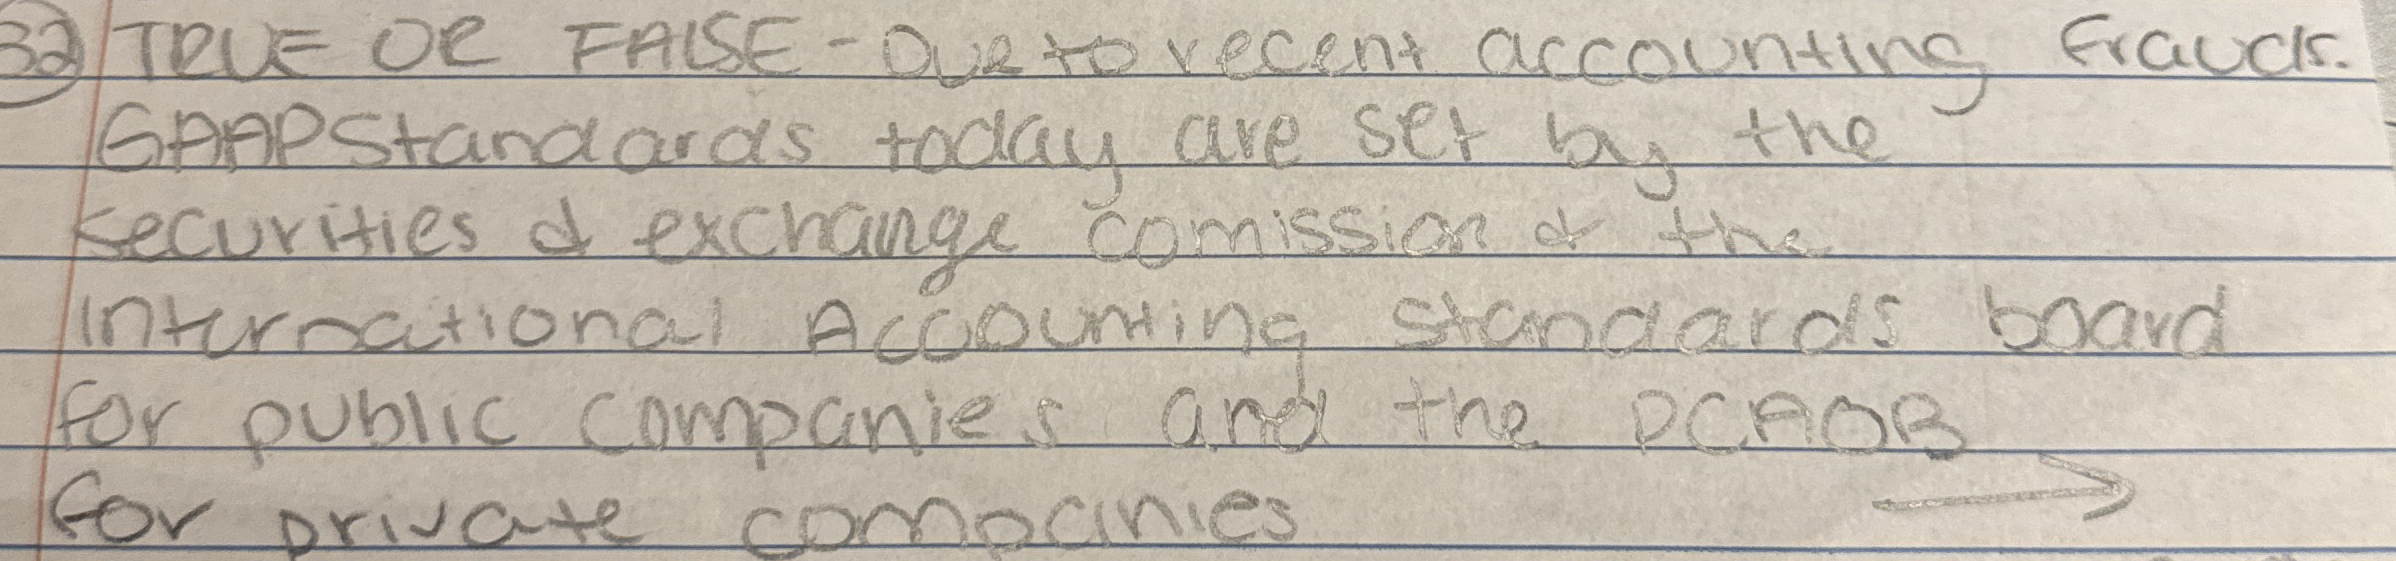 32 TRUE OR FALSE - Due to recent accounting frauds.
GAAP Standards today are set by the
securities & exchange comission & the
international Accounting standards board
for public companies and the PCAOB
for private companies →